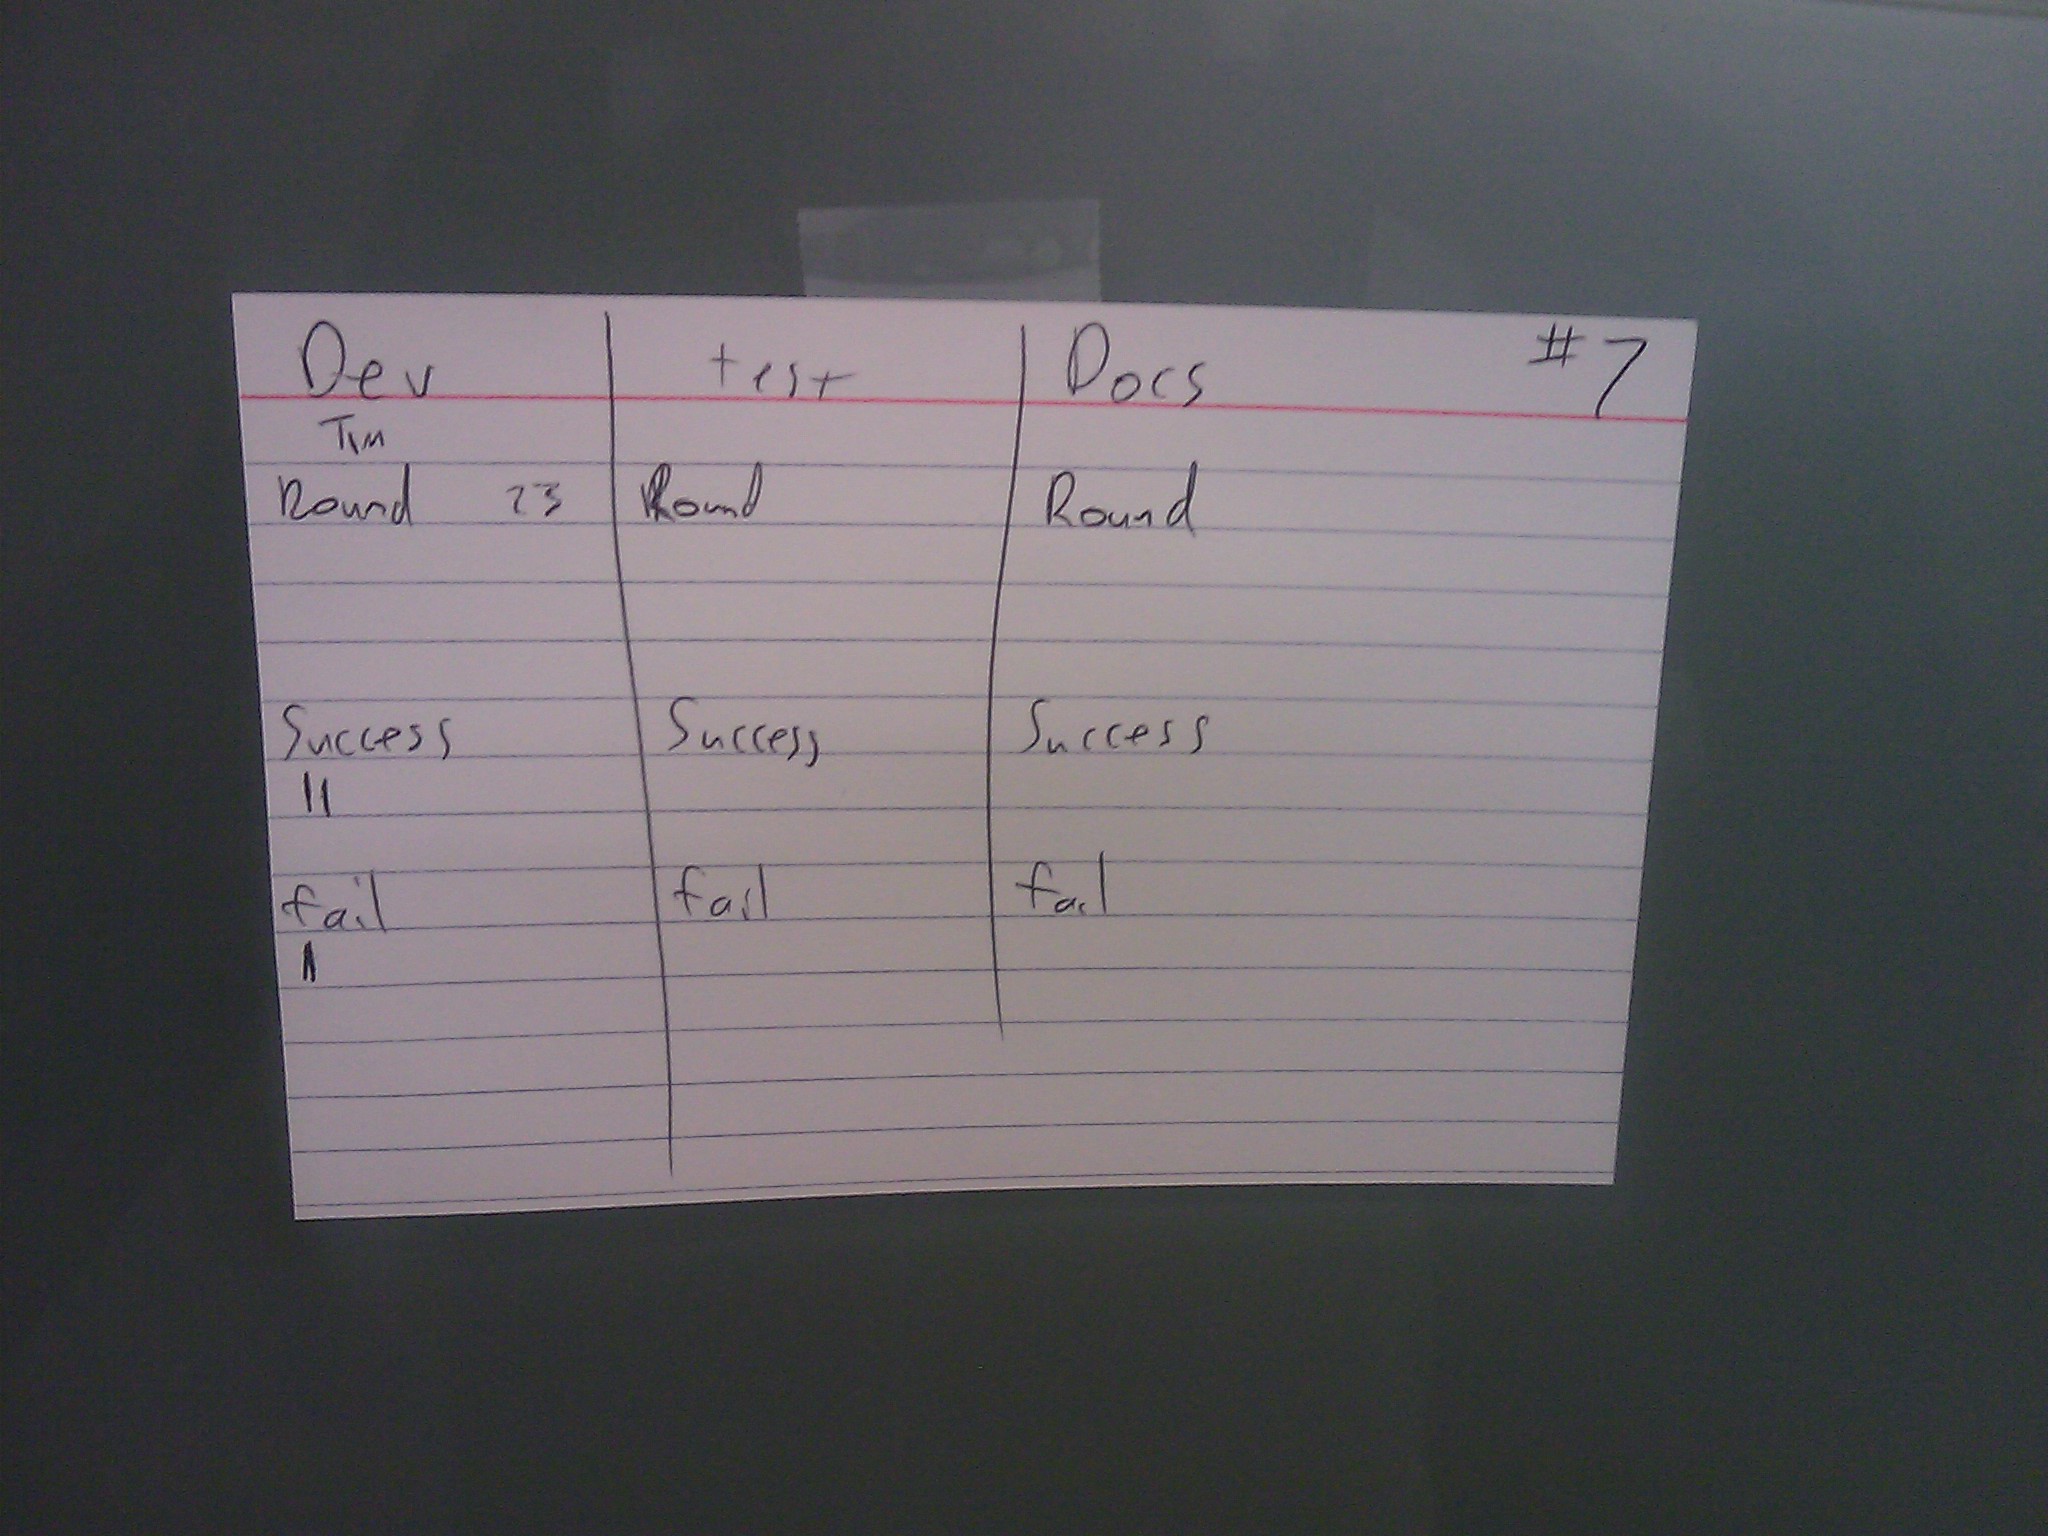 Dev test Docs #7
Tim
Round 23 Round Round
Success Success Success
||
fail fail fail
|